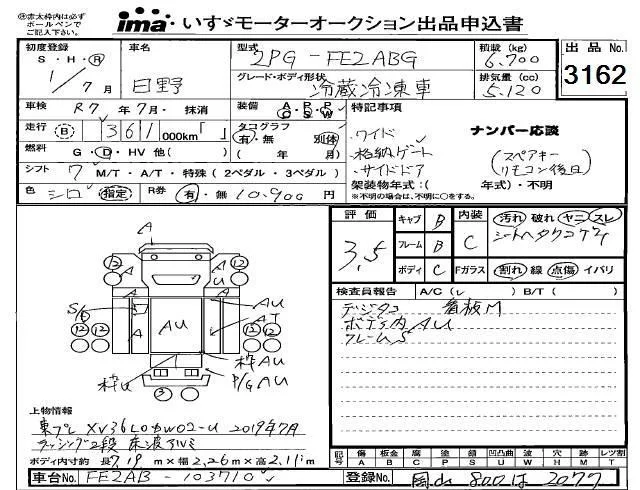 ㊟赤太枠内は必ず
ボールペンで
ご記入下さい。
ima いすゞモーターオークション出品申込書
初度登録 S・H・R 1/7月
車名 日野
型式 2PG-FE2ABG
グレード・ボディ形状 冷蔵冷凍車
積載(kg) 6,700
排気量(cc) 5,120
出品No. 3162
車検 R7年7月・抹消
装備 A・P・P C S W
走行 B 361 000km「 」
タコグラフ 有・無 別体
( 年 月)
燃料 G・D・HV 他( )
シフト 7 M/T・A/T・特殊(2ペダル・3ペダル)
色 シロ 指定 R券 有・無 10,900円
特記事項
ワイド ナンバー応談
格納ゲート (スペアキー
サイドドア リモコン後日)
架装物年式:( 年式)・不明
※不明の場合は、不明に○をする。
評価 3.5
キャブ B
フレーム B
ボディ C
内装 C
Fガラス
汚れ 破れ ヤニ スレ
割れ 線 点傷 イバリ
検査員報告 A/C(レ) B/T( )
デジタコ 看板M
ボディ内AU
フレームS
A
A
U
12 12
S/6
A A A
AU
AU
AT
12 12 12 12
枠U 枠AU
P/GAU
3
上物情報
東プレ XV36 2019年7月
ラッシング2段
ボディ内寸約 長7.19m×幅2.26m×高2.11m
車台No. FE2AB-103710
記号 傷 板金 腐 塗 錆 凹凸曲 波 穴 跡 レツ割
A B C P S U W H M T
登録No. 岡山 800 は 2077